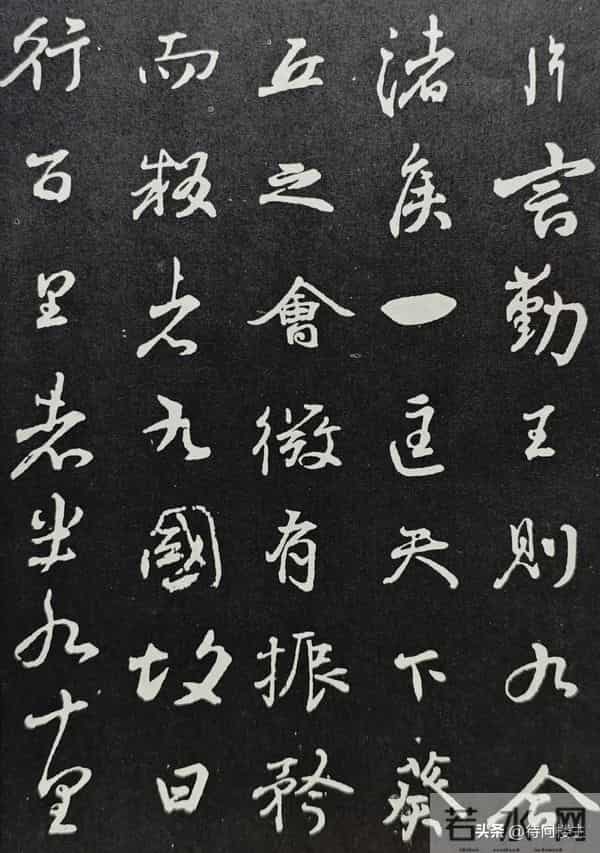 片言勤王則九合
諸侯一匡天下葵
丘之會微有振矜
而叛者九國故曰
行百里者半九十里
若水网
头条 @待同楼主